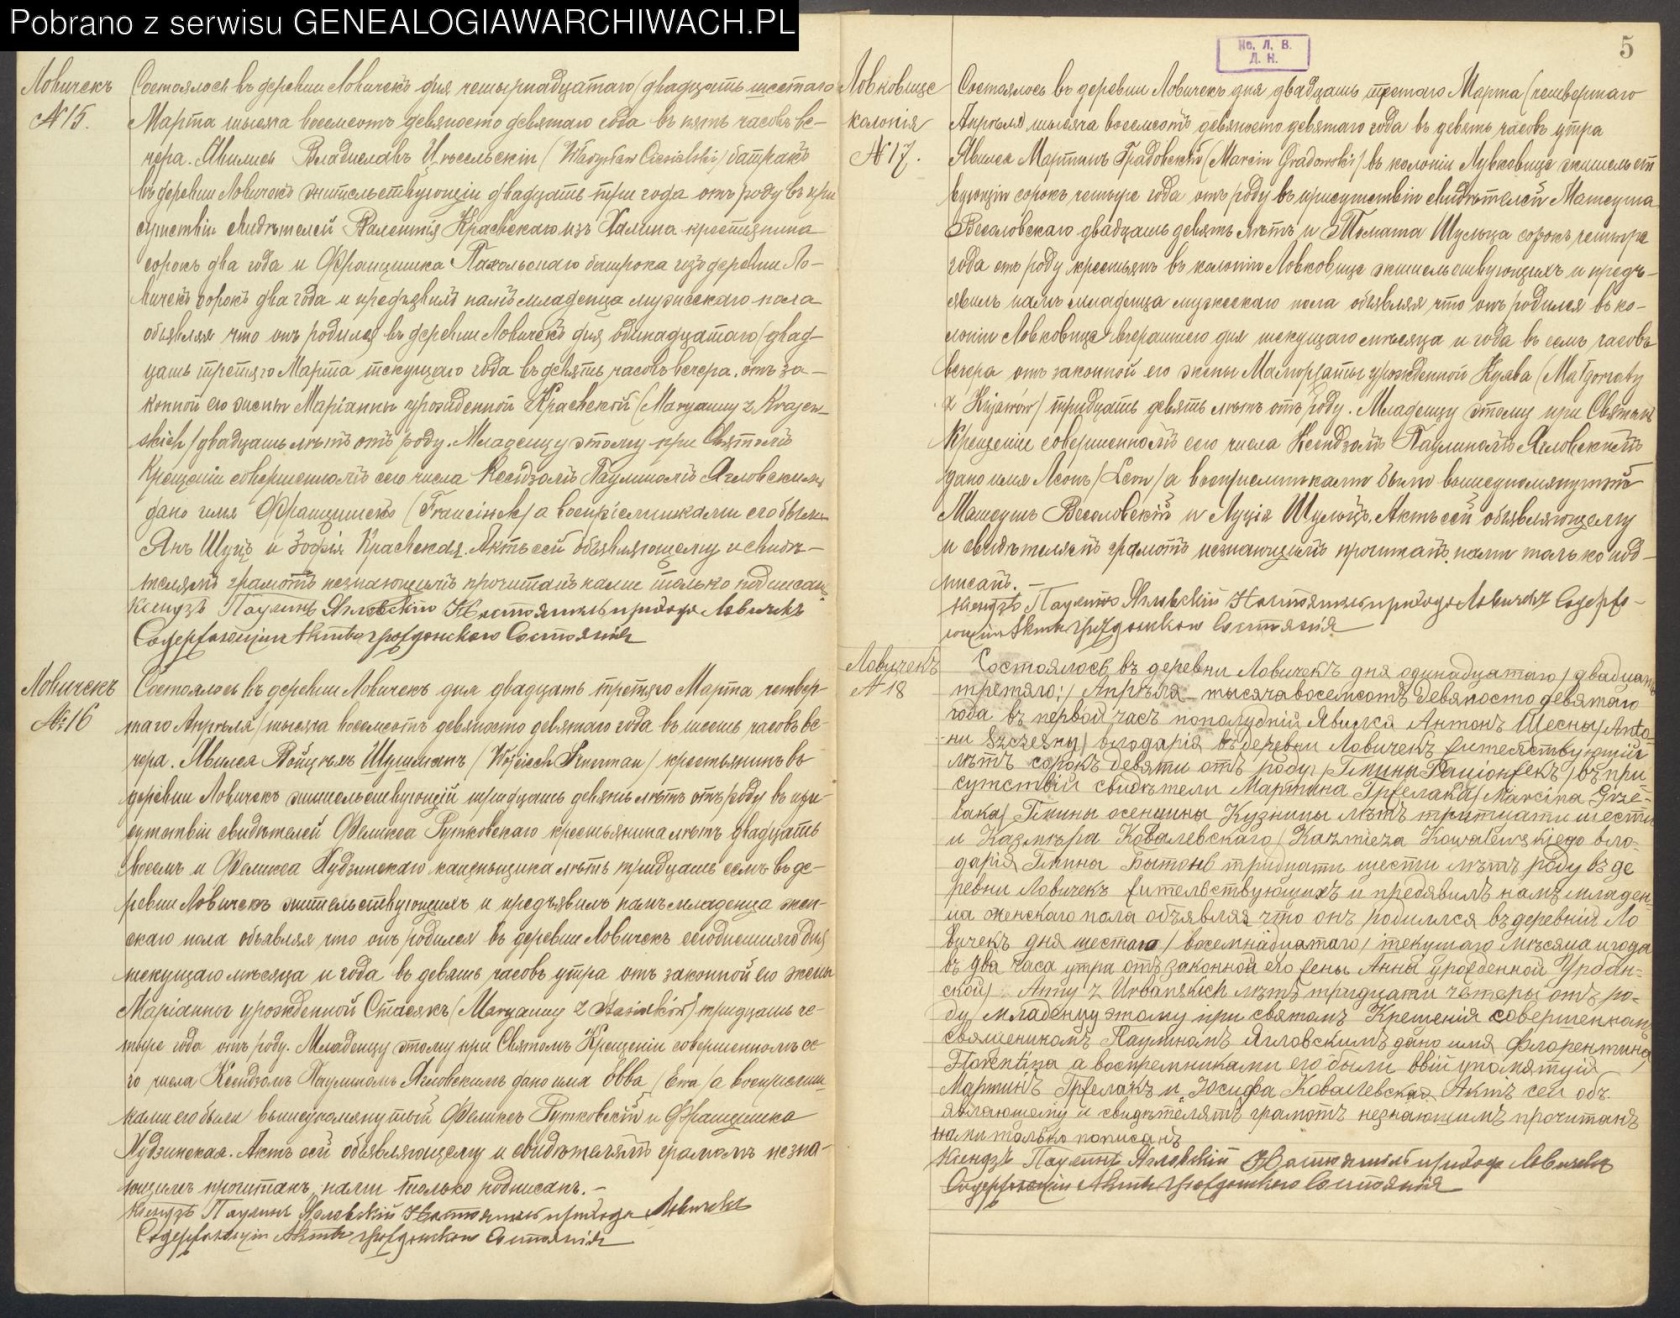 Pobrano z serwisu GENEALOGIAWARCHIWACH.PL
Ловичекъ
№ 15.
Состоялось въ деревни Ловичекъ дня четырнадцатаго (двадцать шестаго
Марта тысяча восемсотъ девяносто девятаго года въ пять часовъ ве-
чера. Явились Владиславъ Цѣсельскiй (Władysław Ciesielski) батракъ
въ деревни Ловичекъ жительствующiй двадцать три года отъ роду въ при
сутствiи свидѣтелей Валентiя Краевскаго изъ Халина крестянина
сорокъ два года и Францишка батрока изъ деревни Ло-
вичекъ сорокъ два года и предъявилъ намъ младенца мужескаго пола
объявляя что онъ родился въ деревни Ловичекъ дня одинадцатаго (двад-
цать третяго Марта текущаго года въ девять часовъ вечера, отъ за-
конной его жены Марiанны урожденной Краевской (Maryanny z Krajew-
skich) двадцать лѣтъ отъ роду. Младенцу этому при Святомъ
Крещенiи совершенномъ сего числа Ксендзомъ Паулиномъ Ягловскимъ
дано имя Францишекъ (Franciszek) а воспрiемниками его были
Янъ Шуцъ и Зофiя Краевская. Актъ сей объявляющему и свидѣ-
телямъ грамотѣ незнающимъ прочитанъ нами только подписан
Ксендзъ Паулинъ Ягловскiй Настоятель прихода Ловичекъ
Содержающiй Акты гражданского Состоянiя
Ловичекъ
№ 16
Состоялось въ деревни Ловичекъ дня двадцать третяго Марта, четвер-
таго Апрѣля) тысяча восемсотъ девяносто девятаго года въ шесть часовъ ве-
чера. Явился Войцѣхъ (Wojciech) крестьянинъ въ
деревни Ловичекъ жительствующiй тридцать девять лѣтъ отъ роду въ при-
сутствiи свидѣтелей Феликса Рутковскаго крестьянина лѣтъ двадцать
восемъ и Феликса Худзинскаго каменьщика лѣтъ тридцать семъ въ де-
ревни Ловичекъ жительствующихъ и предъявилъ намъ младенца жен-
скаго пола объявляя что онъ родился въ деревни Ловичекъ сегоднешняго дня
текущаго мѣсяца и года въ девять часовъ утра отъ законной его жены
Марiанны урожденной Стасякъ (Maryanny z Stasiaków) тридцать че-
тыре года отъ роду. Младенцу этому при Святомъ Крещенiи совершенномъ се-
го числа Ксендзомъ Паулиномъ Ягловскимъ дано имя Эвва (Ewa) а воспрiемни-
ками его были вышеупомянутый Феликсъ Рутковскiй и Францишка
Худзинская. Актъ сей объявляющему и свидѣтелямъ грамотѣ незна-
ющимъ прочитанъ, нами только подписанъ. –
Ксендзъ Паулинъ Ягловскiй Настоятель прихода Ловичекъ
Содержающiй Акты гражданского Состоянiя
Но. Л. В.
Д. Н.
5
Ловковице
колонiя
№ 17.
Состоялось въ деревни Ловичекъ дня двадцать третаго Марта (четвертаго
Апрѣля) тысяча восемсотъ девяносто девятаго года въ девять часовъ утра
Явился Мартинъ Градовскiй (Marcin Gradowski) въ колонiи Лувковице жительст
вующiй сорокъ четыре года отъ роду въ присутствiи свидѣтелей Матеуша
Веселовскаго двадцать девять лѣтъ и Томаша Шульца сорокъ четыре
года отъ роду крестьянъ въ колонiи Ловковице жительствующихъ и предъ-
явилъ намъ младенца мужескаго пола объявляя что онъ родился въ ко-
лонiи Ловковице вчерашнего дня текущаго мѣсяца и года въ семъ часовъ
вечера отъ законной его жены Малгоржаты урожденной Куява (Małgorzaty
z Kujawów) тридцать девять лѣтъ отъ роду. Младенцу этому при Святомъ
Крещенiи совершенномъ сего числа Ксендзомъ Паулиномъ Ягловскимъ
дано имя Леонъ (Leon) а воспрiемниками были вышеупомянутый
Матеушъ Веселовскiй и Луцiя Шульцъ. Актъ сей объявляющему
и свидѣтелямъ грамотѣ незнающимъ прочитанъ нами только под-
писанъ. –
Ксендзъ Паулинъ Ягловскiй Настоятель прихода Ловичекъ Содержа-
ющiй Акты гражданского Состоянiя
Ловичекъ
№ 18
Состоялось въ деревни Ловичекъ дня одинадцатаго / двадцать
третяго:/ Апрѣля тысяча восемсотъ девяносто девятаго
года въ первой часъ пополуднiй Явился Антонъ Щесны / Anto-
ni Szczesny / влодарiя въ деревни Ловичекъ жительствующiй
лѣтъ сорокъ девяти отъ роду въ при
сутствiй свидѣтели Мартина Гржелака / Marcina Grze-
laka / Гмины осенцины Кузницы лѣтъ тритцати шести
и Казмѣра Ковалевскаго / Kazmieza Kowalewskiego вло-
дарiя Гмины Бытонь тридцати шести лѣтъ роду въ де
ревни Ловичекъ жительствующихъ и предявилъ намъ младен-
ца женскаго пола объявляя что онъ родился въ деревнiя Ло
вичекъ дня шестаго / восемнадцатаго / текущаго мѣсяца и года
въ два часа утра отъ законной его жены Анны урожденной Урбан-
ской Anny z Urbanskich лѣтъ тридцати четеры отъ ро-
ду Младенцу этому при святомъ Крещенiя совершенномъ
священикомъ Паулиномъ Ягловскимъ дано имя Флорентина
Florentina а воспремниками его были овiй упомятiй
Мартинъ Гржелакъ и Юзефа Ковалевская Актъ сей объ-
являющему и свидѣтелямъ грамотѣ незнающимъ прочитанъ
нами только пописанъ
Ксендзъ Паулинъ Ягловскiй Настоятель прихода Ловичекъ
Содержающiй Акты гражданского Состоянiя